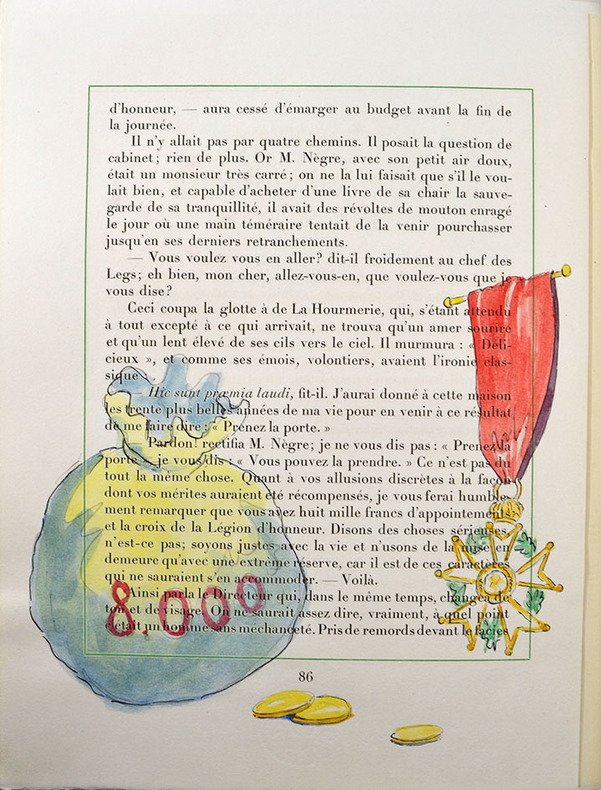 d'honneur, — aura cessé d'émarger au budget avant la fin de
la journée.
Il n'y allait pas par quatre chemins. Il posait la question de
cabinet; rien de plus. Or M. Nègre, avec son petit air doux,
était un monsieur très carré; on ne la lui faisait que s'il le vou-
lait bien, et capable d'acheter d'une livre de sa chair la sauve-
garde de sa tranquillité, il avait des révoltes de mouton enragé
le jour où une main téméraire tentait de la venir pourchasser
jusqu'en ses derniers retranchements.
— Vous voulez vous en aller? dit-il froidement au chef des
Legs; eh bien, mon cher, allez-vous-en, que voulez-vous que je
vous dise?
Ceci coupa la glotte à de La Hourmerie, qui, s'étant attendu
à tout excepté à ce qui arrivait, ne trouva qu'un amer sourire
et qu'un lent élevé de ses cils vers le ciel. Il murmura : « Déli-
cieux », et comme ses émois, volontiers, avaient l'ironie clas-
sique :
— Hic sunt præmia laudi, fit-il. J'aurai donné à cette maison
les trente plus belles années de ma vie pour en venir à ce résultat
de me faire dire : « Prenez la porte. »
— Pardon! rectifia M. Nègre; je ne vous dis pas : « Prenez la
porte », je vous dis : « Vous pouvez la prendre. » Ce n'est pas du
tout la même chose. Quant à vos allusions discrètes à la façon
dont vos mérites auraient été récompensés, je vous ferai humble-
ment remarquer que vous avez huit mille francs d'appointements
et la croix de la Légion d'honneur. Disons des choses sérieuses,
n'est-ce pas; soyons justes avec la vie et n'usons de la mise en
demeure qu'avec une extrême réserve, car il est de ces caractères
qui ne sauraient s'en accommoder. — Voilà.
Ainsi parla le Directeur qui, dans le même temps, changea de
ton et de visage. On ne saurait assez dire, vraiment, à quel point
c'était un homme sans méchanceté. Pris de remords devant le faciès
8.000
86